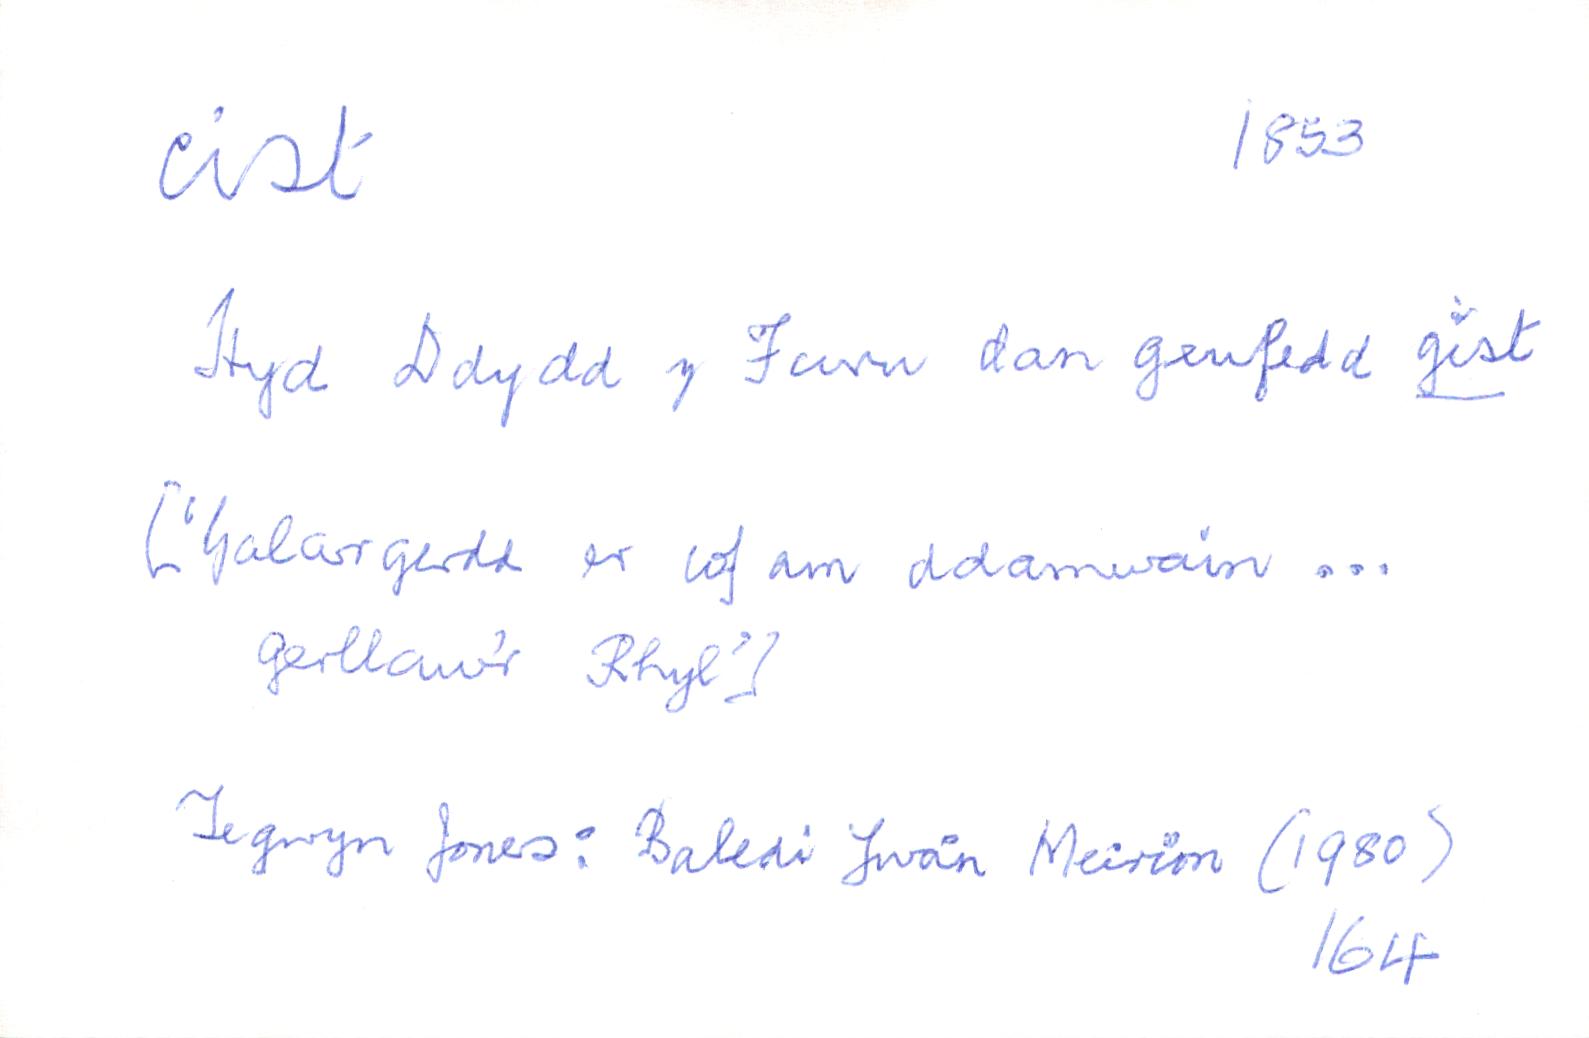 cist 1853
Hyd Ddydd y Farn dan genfedd gist
['Galargerdd er cof am ddamwain ...
gerllaw'r Rhyl']
Tegwyn Jones: Baledi Ywain Meirion (1980)
164